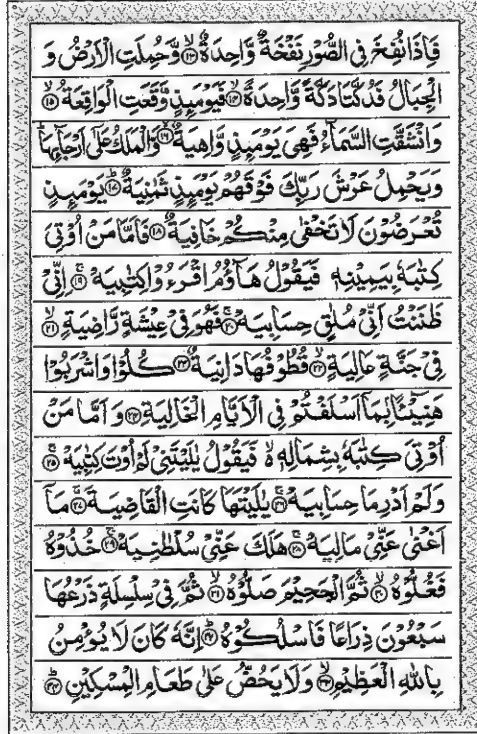 فَاِذَا نُفِخَ فِی الصُّوۡرِ نَفۡخَةٌ وَّاحِدَةٌ ۙ﴿۱۳﴾ وَّحُمِلَتِ الۡاَرۡضُ وَ
الۡجِبَالُ فَدُكَّتَا دَكَّةً وَّاحِدَةً ۙ﴿۱۴﴾ فَيَوۡمَئِذٍ وَّقَعَتِ الۡوَاقِعَةُ ۙ﴿۱۵﴾
وَانۡشَقَّتِ السَّمَآءُ فَهِیَ يَوۡمَئِذٍ وَّاهِيَةٌ ۙ﴿۱۶﴾ وَّالۡمَلَكُ عَلٰٓی اَرۡجَآئِهَا ؕ
وَيَحۡمِلُ عَرۡشَ رَبِّكَ فَوۡقَهُمۡ يَوۡمَئِذٍ ثَمٰنِيَةٌ ؕ﴿۱۷﴾ يَوۡمَئِذٍ
تُعۡرَضُوۡنَ لَا تَخۡفٰی مِنۡكُمۡ خَافِيَةٌ ﴿۱۸﴾ فَاَمَّا مَنۡ اُوۡتِیَ
كِتٰبَهٗ بِيَمِيۡنِهٖ فَيَقُوۡلُ هَآؤُمُ اقۡرَءُوۡا كِتٰبِيَهۡ ۚ﴿۱۹﴾ اِنِّیۡ
ظَنَنۡتُ اَنِّیۡ مُلٰقٍ حِسَابِيَهۡ ۚ﴿۲۰﴾ فَهُوَ فِیۡ عِيۡشَةٍ رَّاضِيَةٍ ۙ﴿۲۱﴾
فِیۡ جَنَّةٍ عَالِيَةٍ ۙ﴿۲۲﴾ قُطُوۡفُهَا دَانِيَةٌ ﴿۲۳﴾ كُلُوۡا وَاشۡرَبُوۡا
هَنِيۡٓـئًۢا بِمَاۤ اَسۡلَفۡتُمۡ فِی الۡاَيَّامِ الۡخَالِيَةِ ﴿۲۴﴾ وَاَمَّا مَنۡ
اُوۡتِیَ كِتٰبَهٗ بِشِمَالِهٖ ۙ فَيَقُوۡلُ يٰلَيۡتَنِیۡ لَمۡ اُوۡتَ كِتٰبِيَهۡ ۚ﴿۲۵﴾
وَلَمۡ اَدۡرِ مَا حِسَابِيَهۡ ۚ﴿۲۶﴾ يٰلَيۡتَهَا كَانَتِ الۡقَاضِيَةَ ۚ﴿۲۷﴾ مَاۤ
اَغۡنٰی عَنِّیۡ مَالِيَهۡ ۚ﴿۲۸﴾ هَلَكَ عَنِّیۡ سُلۡطٰنِيَهۡ ۚ﴿۲۹﴾ خُذُوۡهُ
فَغُلُّوۡهُ ۙ﴿۳۰﴾ ثُمَّ الۡجَحِيۡمَ صَلُّوۡهُ ۙ﴿۳۱﴾ ثُمَّ فِیۡ سِلۡسِلَةٍ ذَرۡعُهَا
سَبۡعُوۡنَ ذِرَاعًا فَاسۡلُكُوۡهُ ؕ﴿۳۲﴾ اِنَّهٗ كَانَ لَا يُؤۡمِنُ
بِاللّٰهِ الۡعَظِيۡمِ ۙ﴿۳۳﴾ وَلَا يَحُضُّ عَلٰی طَعَامِ الۡمِسۡكِيۡنِ ؕ﴿۳۴﴾